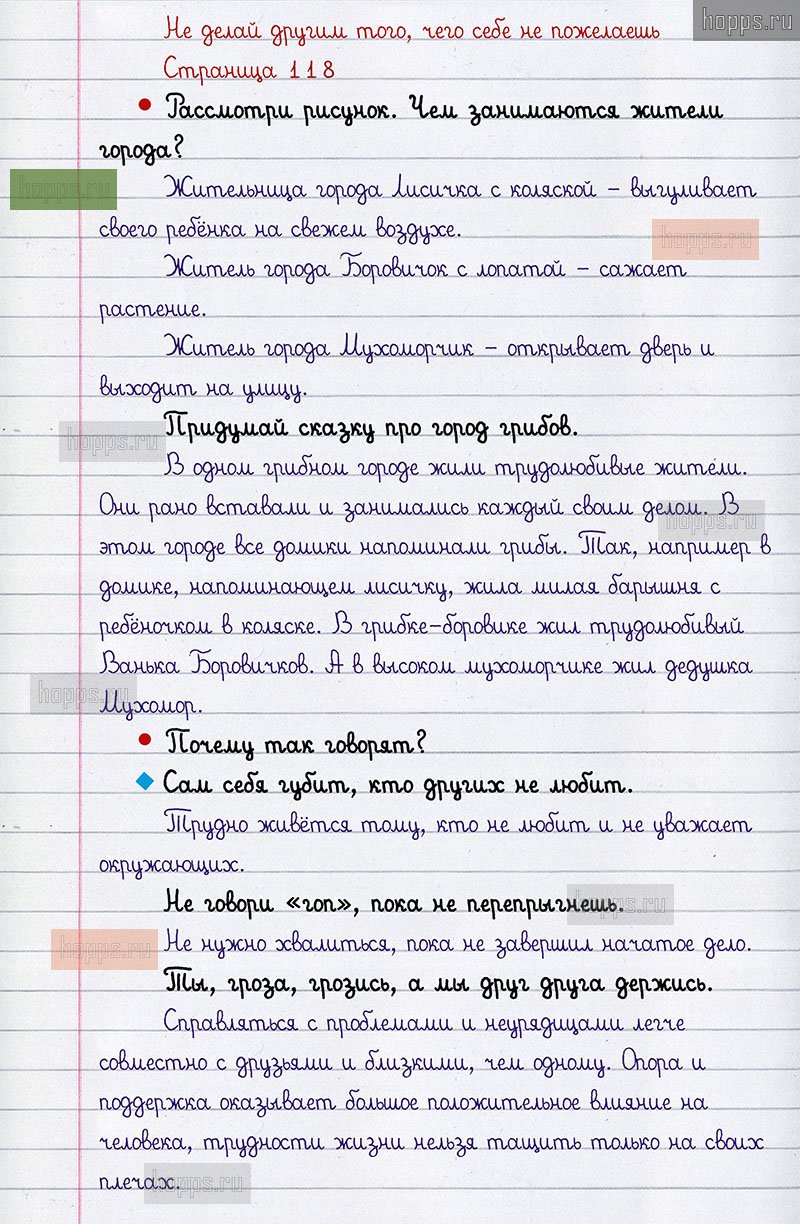 hopps.ru
Не делай другим того, чего себе не пожелаешь
Страница 118
• Рассмотри рисунок. Чем занимаются жители
города?
hopps.ru
Жительница города Лисичка с коляской – выгуливает
своего ребёнка на свежем воздухе.
hopps.ru
Житель города Боровичок с лопатой – сажает
растение.
Житель города Мухоморчик – открывает дверь и
выходит на улицу.
Придумай сказку про город грибов.
hopps.ru
В одном грибном городе жили трудолюбивые жители.
Они рано вставали и занимались каждый своим делом. В
hopps.ru
этом городе все домики напоминали грибы. Так, например в
домике, напоминающем лисичку, жила милая барышня с
ребёночком в коляске. В грибке-боровике жил трудолюбивый
Ванька Боровичков. А в высоком мухоморчике жил дедушка
hopps.ru
Мухомор.
• Почему так говорят?
Сам себя губит, кто других не любит.
Трудно живётся тому, кто не любит и не уважает
окружающих.
Не говори «гоп», пока не перепрыгнешь.
hopps.ru
hopps.ru
Не нужно хвалиться, пока не завершил начатое дело.
Ты, гроза, грозись, а мы друг друга держись.
Справляться с проблемами и неурядицами легче
совместно с друзьями и близкими, чем одному. Опора и
поддержка оказывает большое положительное влияние на
человека, трудности жизни нельзя тащить только на своих
плечах.
hopps.ru